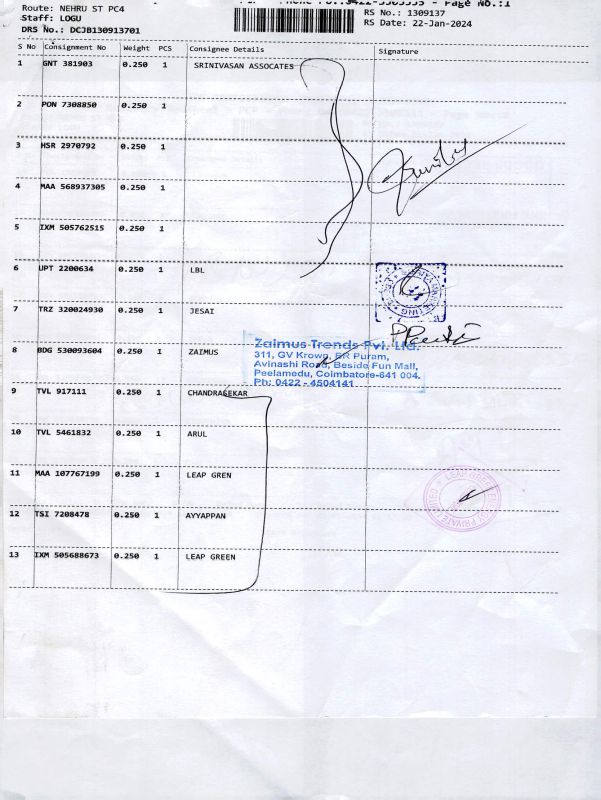 Page No.:1
Route: NEHRU ST PC4
RS No.: 1309137
Staff: LOGU
RS Date: 22-Jan-2024
DRS No.: DCJB130913701
S No Consignment No Weight PCS Consignee Details Signature
1 GNT 381903 0.250 1 SRINIVASAN ASSOCATES
2 PON 7308850 0.250 1
3 HSR 2970792 0.250 1
4 MAA 568937305 0.250 1
5 IXM 505762515 0.250 1
6 UPT 2200634 0.250 1 LBL
7 TRZ 320024930 0.250 1 JESAI
8 BDG 530093604 0.250 1 ZAIMUS
Zaimus Trends Pvt. Ltd.
311, GV Krown, BR Puram,
Avinashi Road, Beside Fun Mall,
Peelamedu, Coimbatore-641 004.
Ph: 0422 - 4504141
9 TVL 917111 0.250 1 CHANDRASEKAR
10 TVL 5461832 0.250 1 ARUL
11 MAA 107767199 0.250 1 LEAP GREN
12 TSI 7208478 0.250 1 AYYAPPAN
13 IXM 505688673 0.250 1 LEAP GREEN